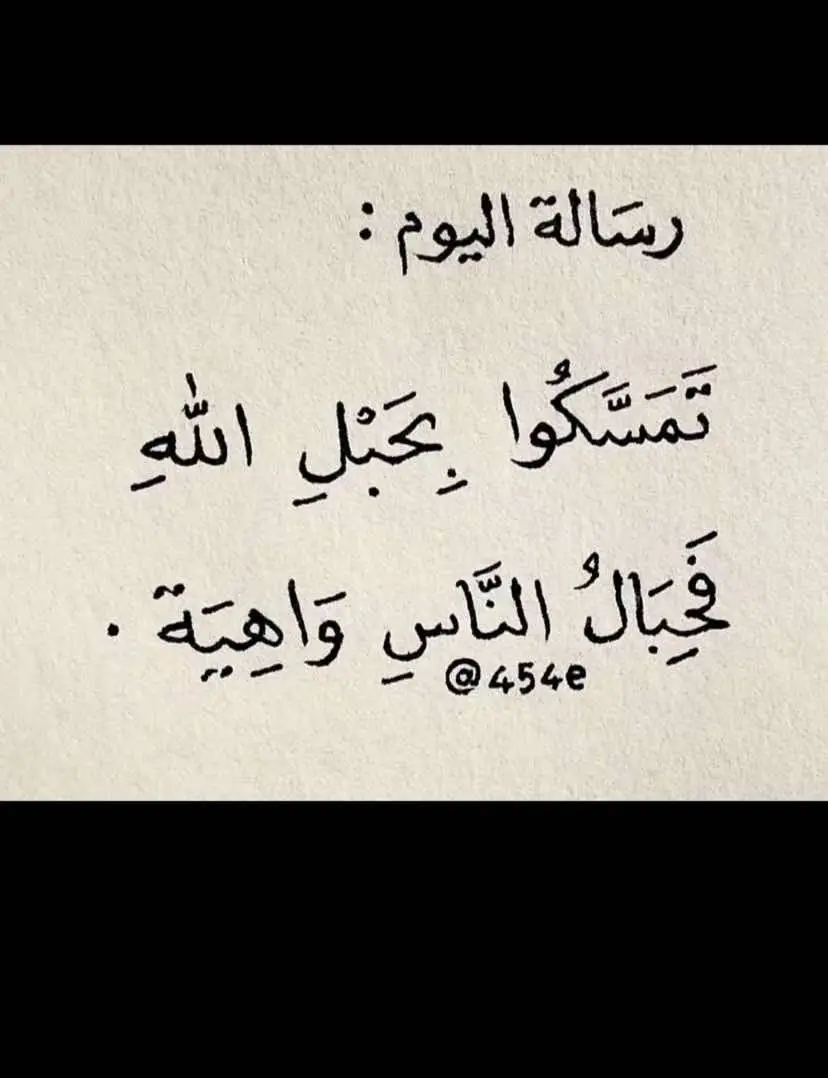 رسَالة اليوم :
تَمَسَّكُوا بِحَبْلِ اللهِ
فَحِبَالُ النَّاسِ وَاهِيَة .
@454e